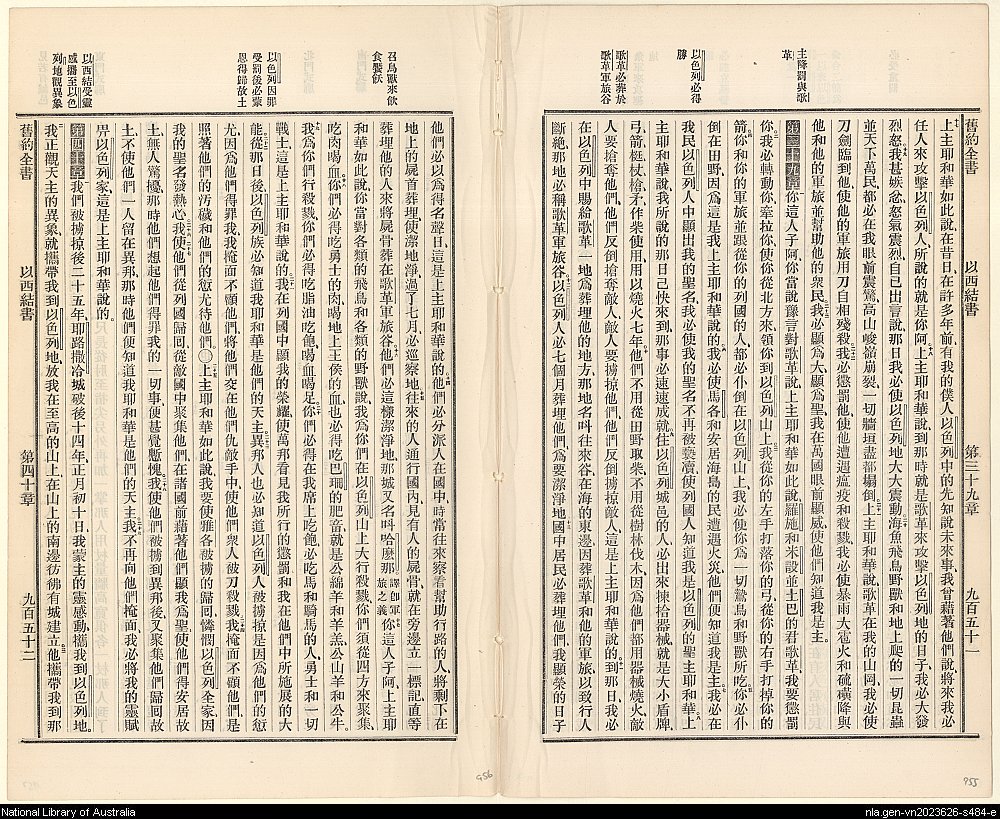 主降罰與歌
革
以色列必得
勝
歌革必葬於
歌革軍旅谷
舊約全書 以西結書 第三十九章 九百五十一
上主耶和華如此說在昔日在許多年前有我的僕人以色列中的先知說未來事我曾藉著他們說將來我必
任人來攻擊以色列人所說的就是你阿上主耶和華說到那時就是歌革來攻擊以色列地的日子我必大發
烈怒我甚嫉忿怒氣震烈自己出言說那日我必使以色列地大大震動海魚飛鳥野獸和地上爬的一切昆蟲
並天下萬民都必在我眼前震驚高山峻嶺崩裂一切牆垣盡都塌倒上主耶和華說歌革在我的山岡我必使
刀劍臨到他使他的軍旅用刀自相殘殺我必懲罰他使他遭遇瘟疫和殺戮我必使暴雨大雹火和硫磺降與
他和他的軍旅並幫助他的衆民我必顯為大顯為聖我在萬國眼前顯威使他們知道我是主
第三十九章你這人子阿你當說豫言對歌革說上主耶和華如此說羅施和米設並土巴的君歌革我要懲罰
你我必轉動你牽拉你使你從北方來領你到以色列山上我從你的左手打落你的弓從你的右手打掉你的
箭你和你的軍旅並跟從你的列國的人都必仆倒在以色列山上我必使你為一切鷙鳥和野獸所吃你必仆
倒在田野因為這是我上主耶和華說的我必使馬各和安居海島的民遭遇火災他們便知道我是主我必在
我民以色列人中顯出我的聖名我必使我的聖名不再被褻瀆使列國人知道我是以色列的聖主耶和華上
主耶和華說我所說的那日己快來到那事必速速成就住以色列城邑的人必出來揀拾器械就是大小盾牌
弓箭梃杖槍矛作柴使用用以燒火七年他們不用從田野取柴不用從樹林伐木因為他們都用器械燒火敵
人要搶奪他們他們反倒搶奪敵人敵人要擄掠他們他們反倒擄掠敵人這是上主耶和華說的到那日我必
在以色列中賜給歌革一地為葬埋他的地方那地名叫往來谷在海的東邊因葬歌革和他的軍旅以致行人
斷絶那地必稱歌革軍旅谷以色列人必七個月葬埋他們為要潔淨地國中居民必葬埋他們我顯榮的日子
召鳥獸來飲
食饗飫
以色列因罪
受罰後必蒙
恩得歸故土
以西結受靈
感攜至以色
列地觀異象
他們必以為得名聲日這是上主耶和華說的他們必分派人在國中時常往來察看幫助行路的人將剩下在
地上的屍首葬埋使潔地淨過了七月必巡察地往來的人通行國內見有人的屍骨就在旁邊立一標記直等
葬埋他的人來將屍骨葬在歌革軍旅谷他們必這樣潔淨地那城又名叫哈麼那譯即軍旅之義你這人子阿上主耶
和華如此說你當對各類的飛鳥和各類的野獸說我為你們在以色列山上大行殺戮你們須從四方來聚集
吃肉喝血你們必得吃勇士的肉喝地上王侯的血也必得吃巴珊的肥畜就是公綿羊和羊羔公山羊和公牛
我為你們行殺戮你們必得吃脂油吃飽喝血喝足你們必得在我席上吃飽必吃馬和騎馬的人勇士和一切
戰士這是上主耶和華說的我在列國中顯我的榮耀使萬邦看見我所行的懲罰和我在他們中所施展的大
能從那日後以色列族必知道我耶和華是他們的天主異邦人也必知道以色列人被擄掠是因為他們的愆
尤因為他們得罪我我掩面不顧他們將他們交在他們仇敵手中使他們衆人被刀殺戮我掩面不顧他們是
照著他們的汚穢和他們的愆尤待他們〇上主耶和華如此說我要使雅各被擄的歸囘憐憫以色列全家因
我的聖名發熱心我使他們從列國歸囘從敵國中聚集他們在諸國前藉著他們顯我為聖使他們得安居故
土無人驚擾那時他們想起他們得罪我的一切事便甚覺慙愧我使他們被擄到異邦後又聚集他們歸囘故
土不使他們一人留在異邦那時他們便知道我耶和華是他們的天主我不再向他們掩面我必將我的靈賦
畀以色列家這是上主耶和華說的
第四十章我們被擄掠後二十五年耶路撒冷城破後十四年正月初十日我蒙主的靈感動攜我到以色列地
我正觀天主的異象就攜帶我到以色列地放我在至高的山上在山上的南邊彷彿有城建立他攜帶我到那
舊約全書 以西結書 第四十章 九百五十二
956
955
National Library of Australia
nla.gen-vn2023626-s484-e